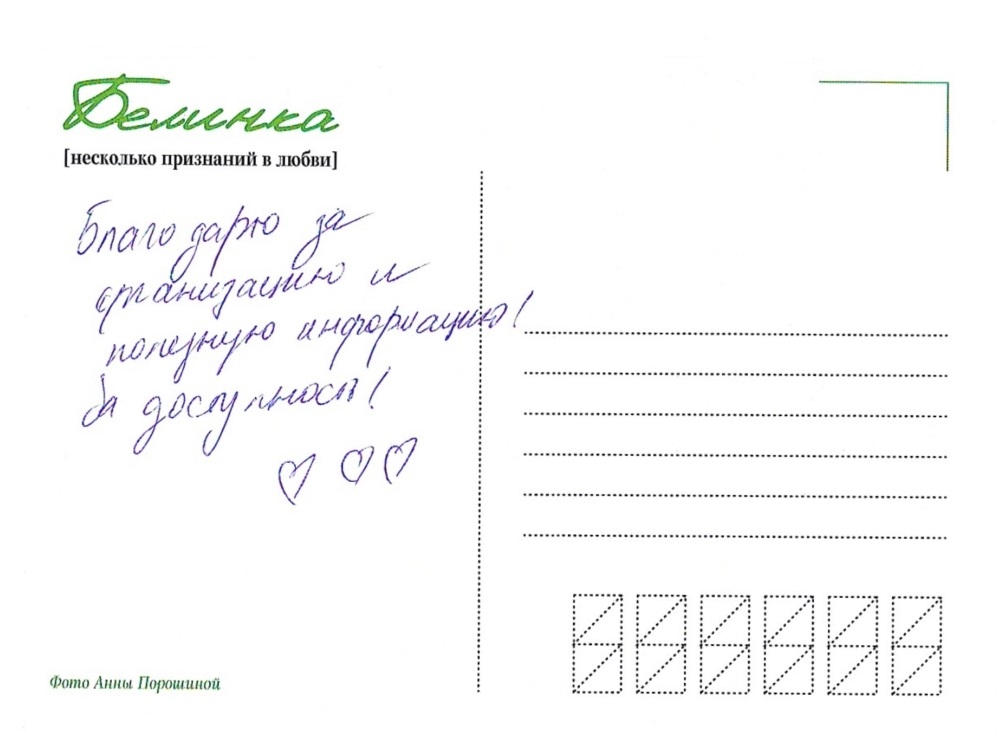 Белинка
[несколько признаний в любви]
Благодарю за
организацию и
полезную информацию!
За доступность!
Фото Анны Порошиной